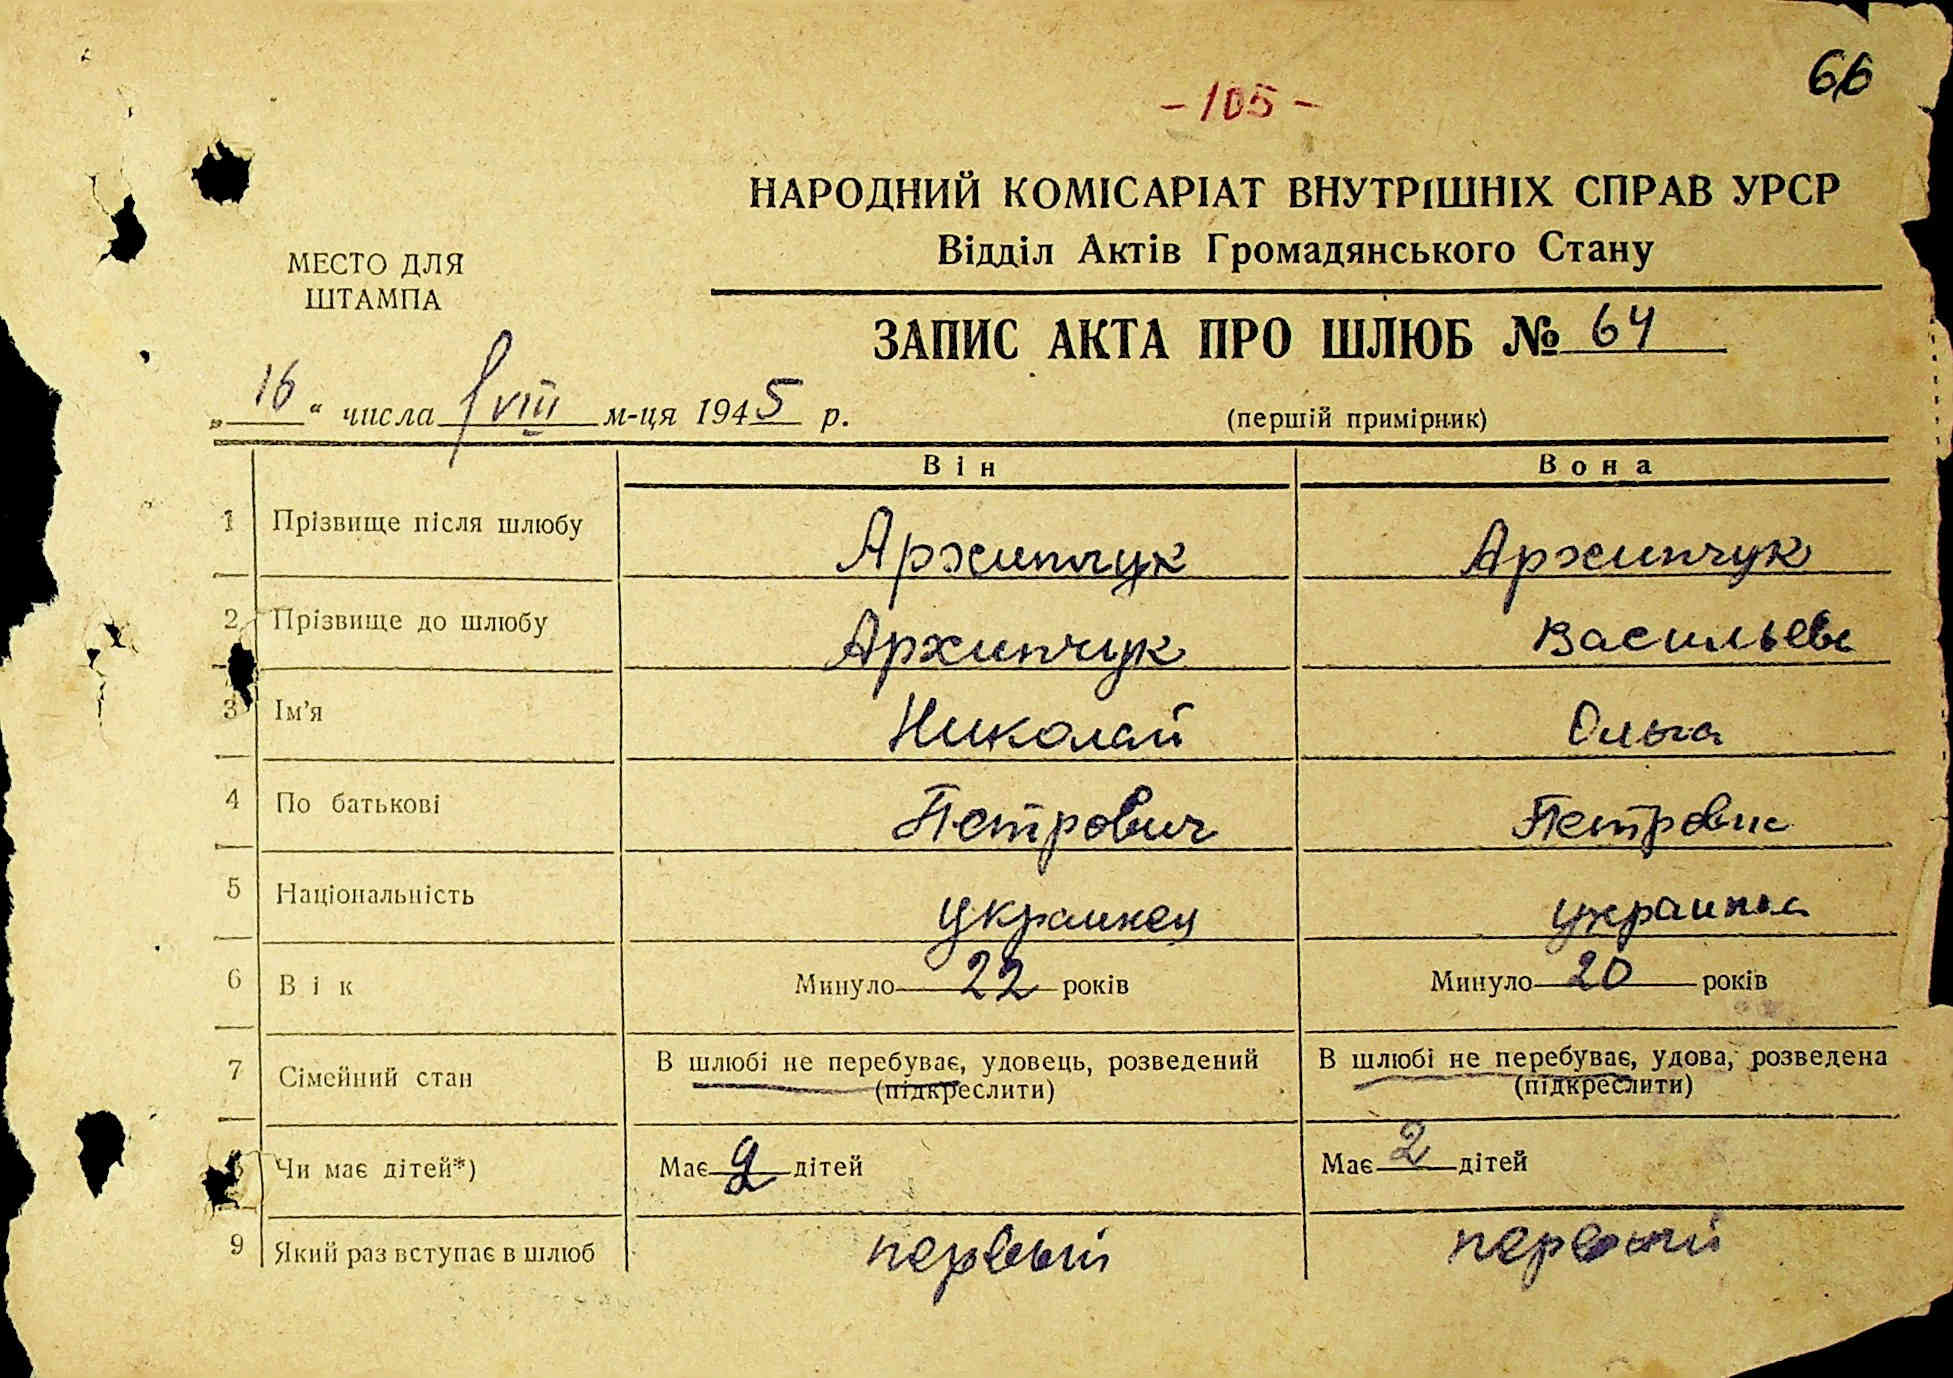 66
-105-
НАРОДНИЙ КОМІСАРІАТ ВНУТРІШНІХ СПРАВ УРСР
Відділ Актів Громадянського Стану
МЕСТО ДЛЯ
ШТАМПА
ЗАПИС АКТА ПРО ШЛЮБ № 64
„16“ числа VIII м-ця 1945 р.
(першій примірник)
Він Вона
1 Прізвище після шлюбу Архипчук Архипчук
2 Прізвище до шлюбу Архипчук Васильев
3 Ім'я Николай Ольга
4 По батькові Петрович Петровна
5 Національність украинец украинка
6 Вік Минуло 22 років Минуло 20 років
7 Сімейний стан В шлюбі не перебуває, удовець, розведений В шлюбі не перебуває, удова, розведена
(підкреслити) (підкреслити)
Чи має дітей*) Має 2 дітей Має 2 дітей
9 Який раз вступає в шлюб первый первый